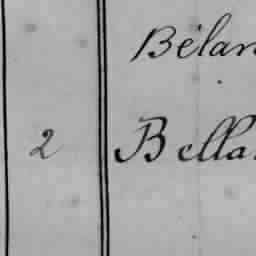 Bélan
2 Bella